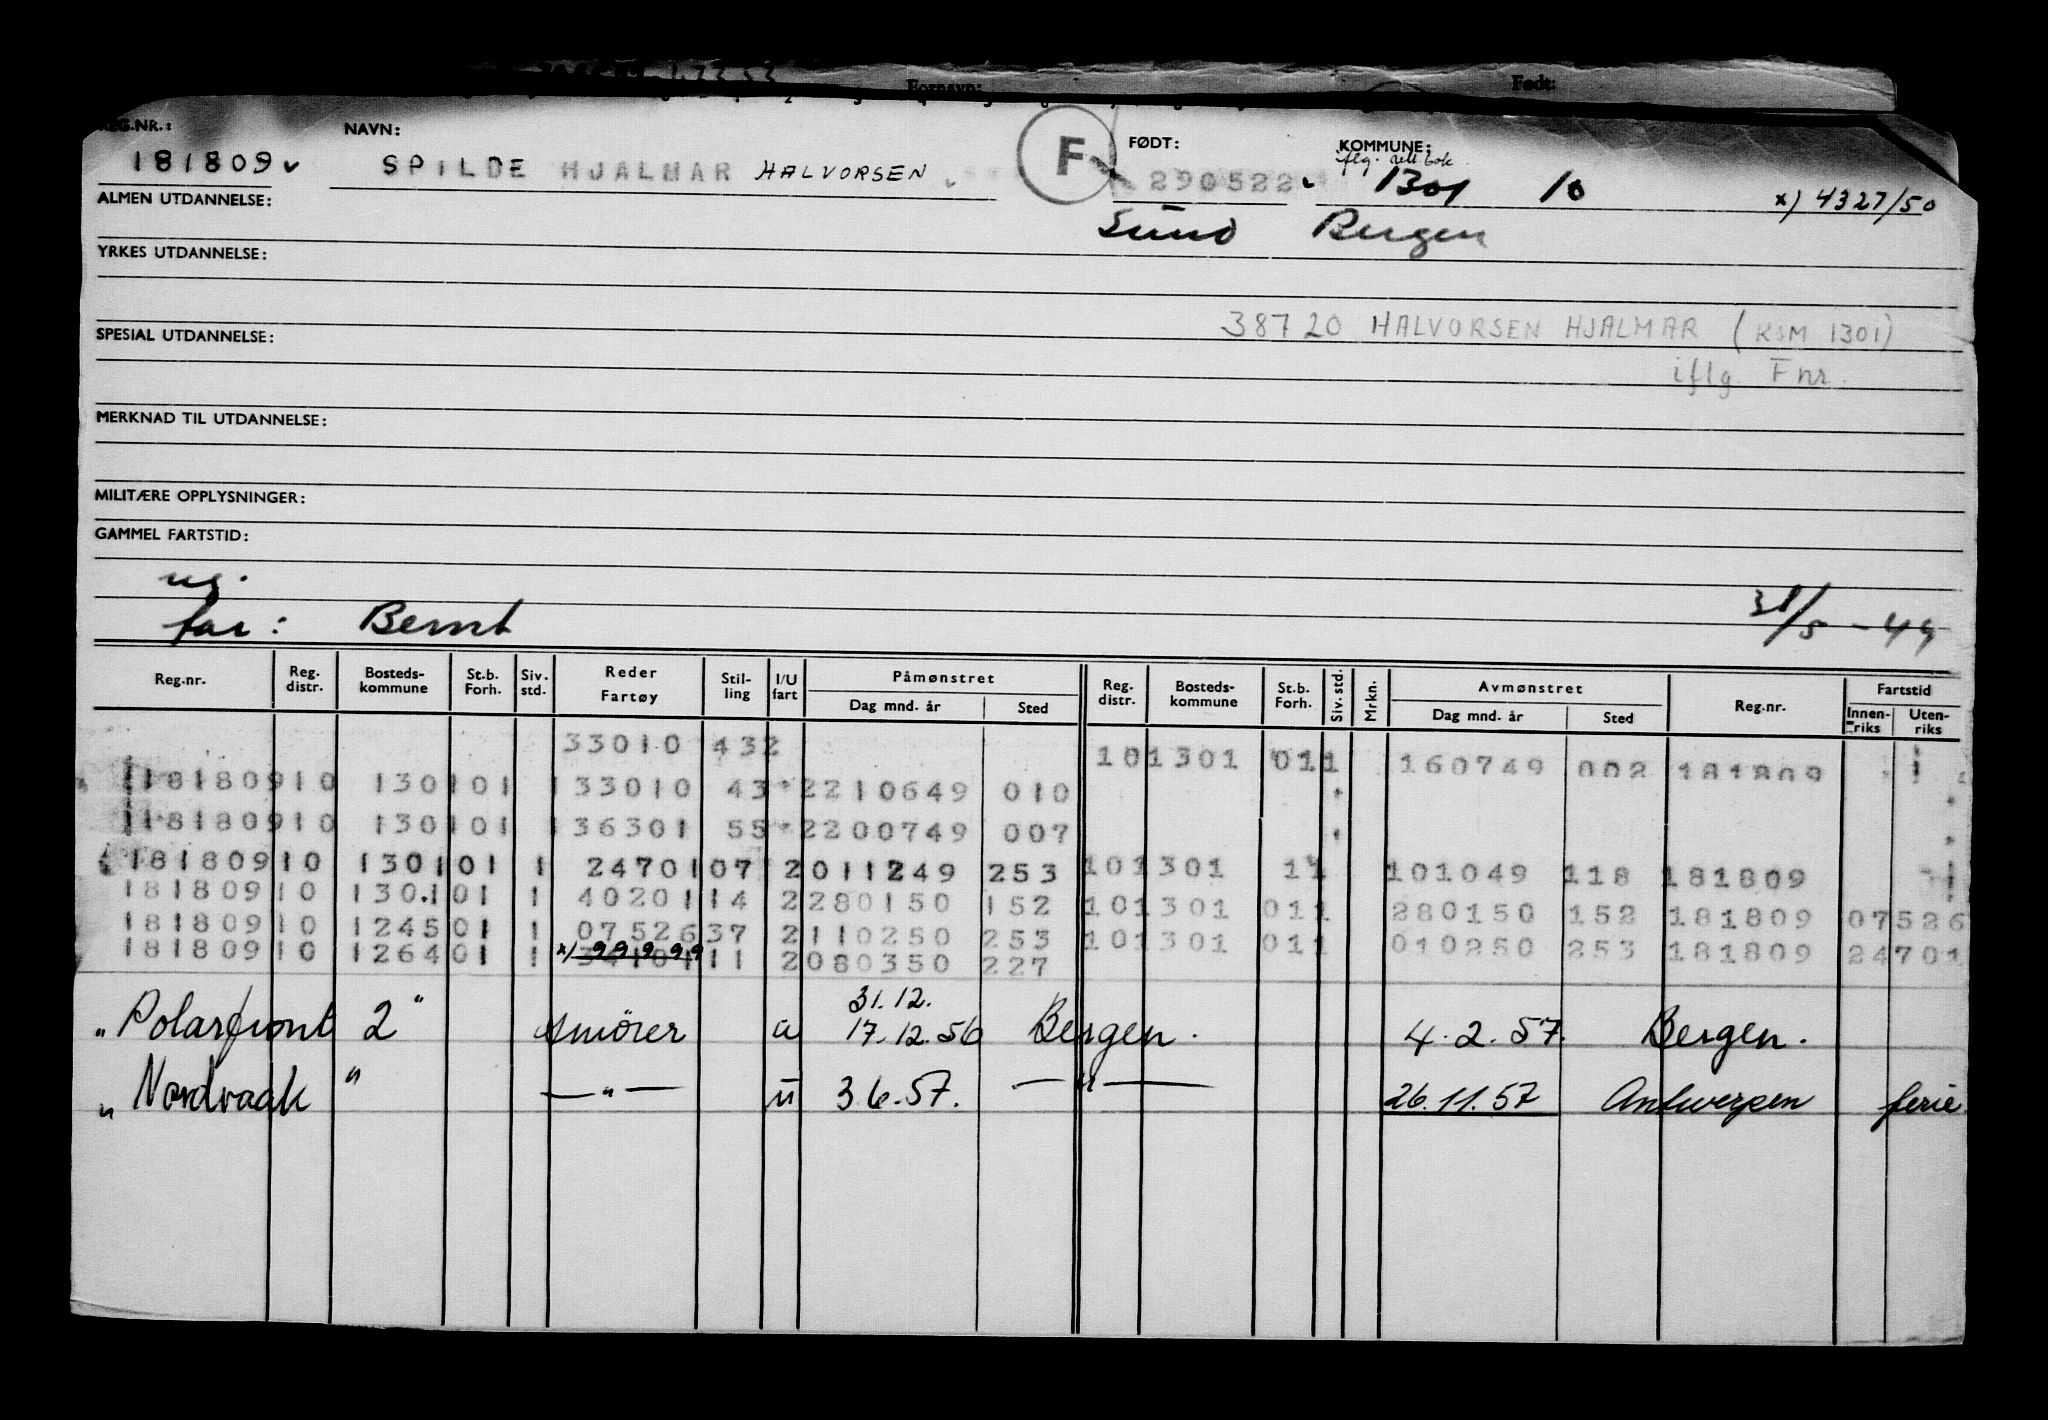 Fornavn: Født:
REG.NR.: NAVN: F FØDT: KOMMUNE:
iflg. rull bok
181809 SPILDE HJALMAR HALVORSEN 290522 1301 10 x) 4327/50
ALMEN UTDANNELSE: Sund Bergen
YRKES UTDANNELSE:
38720 HALVORSEN HJALMAR (KSM 1301)
SPESIAL UTDANNELSE:
iflg. Fnr.
MERKNAD TIL UTDANNELSE:
MILITÆRE OPPLYSNINGER:
GAMMEL FARTSTID:
ug.
far: Bernt 31/5 - 49
Reg.nr. Reg. distr. Bosteds-kommune St.b. Forh. Siv. std. Reder Fartøy Stil-ling I/U fart Påmønstret Dag mnd. år Sted Reg. distr. Bosteds-kommune St.b. Forh. Siv. std. Mrkn. Avmønstret Dag mnd. år Sted Reg.nr. Fartstid Innen-riks Uten-riks
33010 432 101301 011 160749 002 181809
18180910 130101 1 33010 43 2210649 010
18180910 130101 1 36301 55 2200749 007
18180910 130101 1 2470107 2011249 253 101301 11 101049 118 181809
18180910 130101 1 4020114 2280150 152 101301 011 280150 152 181809 07526
18180910 124501 1 0752637 2110250 253 101301 011 010250 253 181809 24701
18180910 126401 1 x) 99999 11 2080350 227
31.12.
"Polarfront 2" smører u 17.12.56 Bergen. 4.2.57. Bergen.
"Nordvaak" — " — u 3 6.57. — " — 26.11.57 Antwerpen ferie